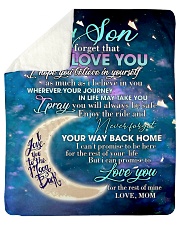 Son
forget that
LOVE YOU
I hope you believe in yourself
as much as i believe in you
WHEREVER YOUR JOURNEY
IN LIFE MAY TAKE YOU
I pray you will always be safe
Enjoy the ride and
Never forget
YOUR WAY BACK HOME
I can't promise to be here
for the rest of your life
But i can promise to
Love you
for the rest of mine
LOVE, MOM
I
Love
you
to the
Moon
Back